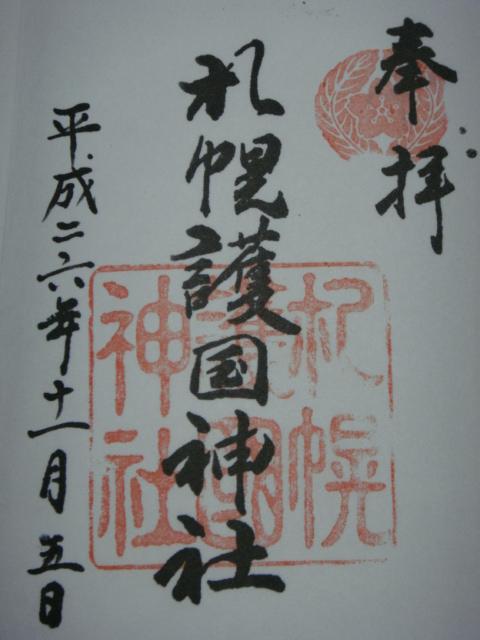 奉拝
札幌護国神社
平成二六年十一月五日
札幌
護國
神社